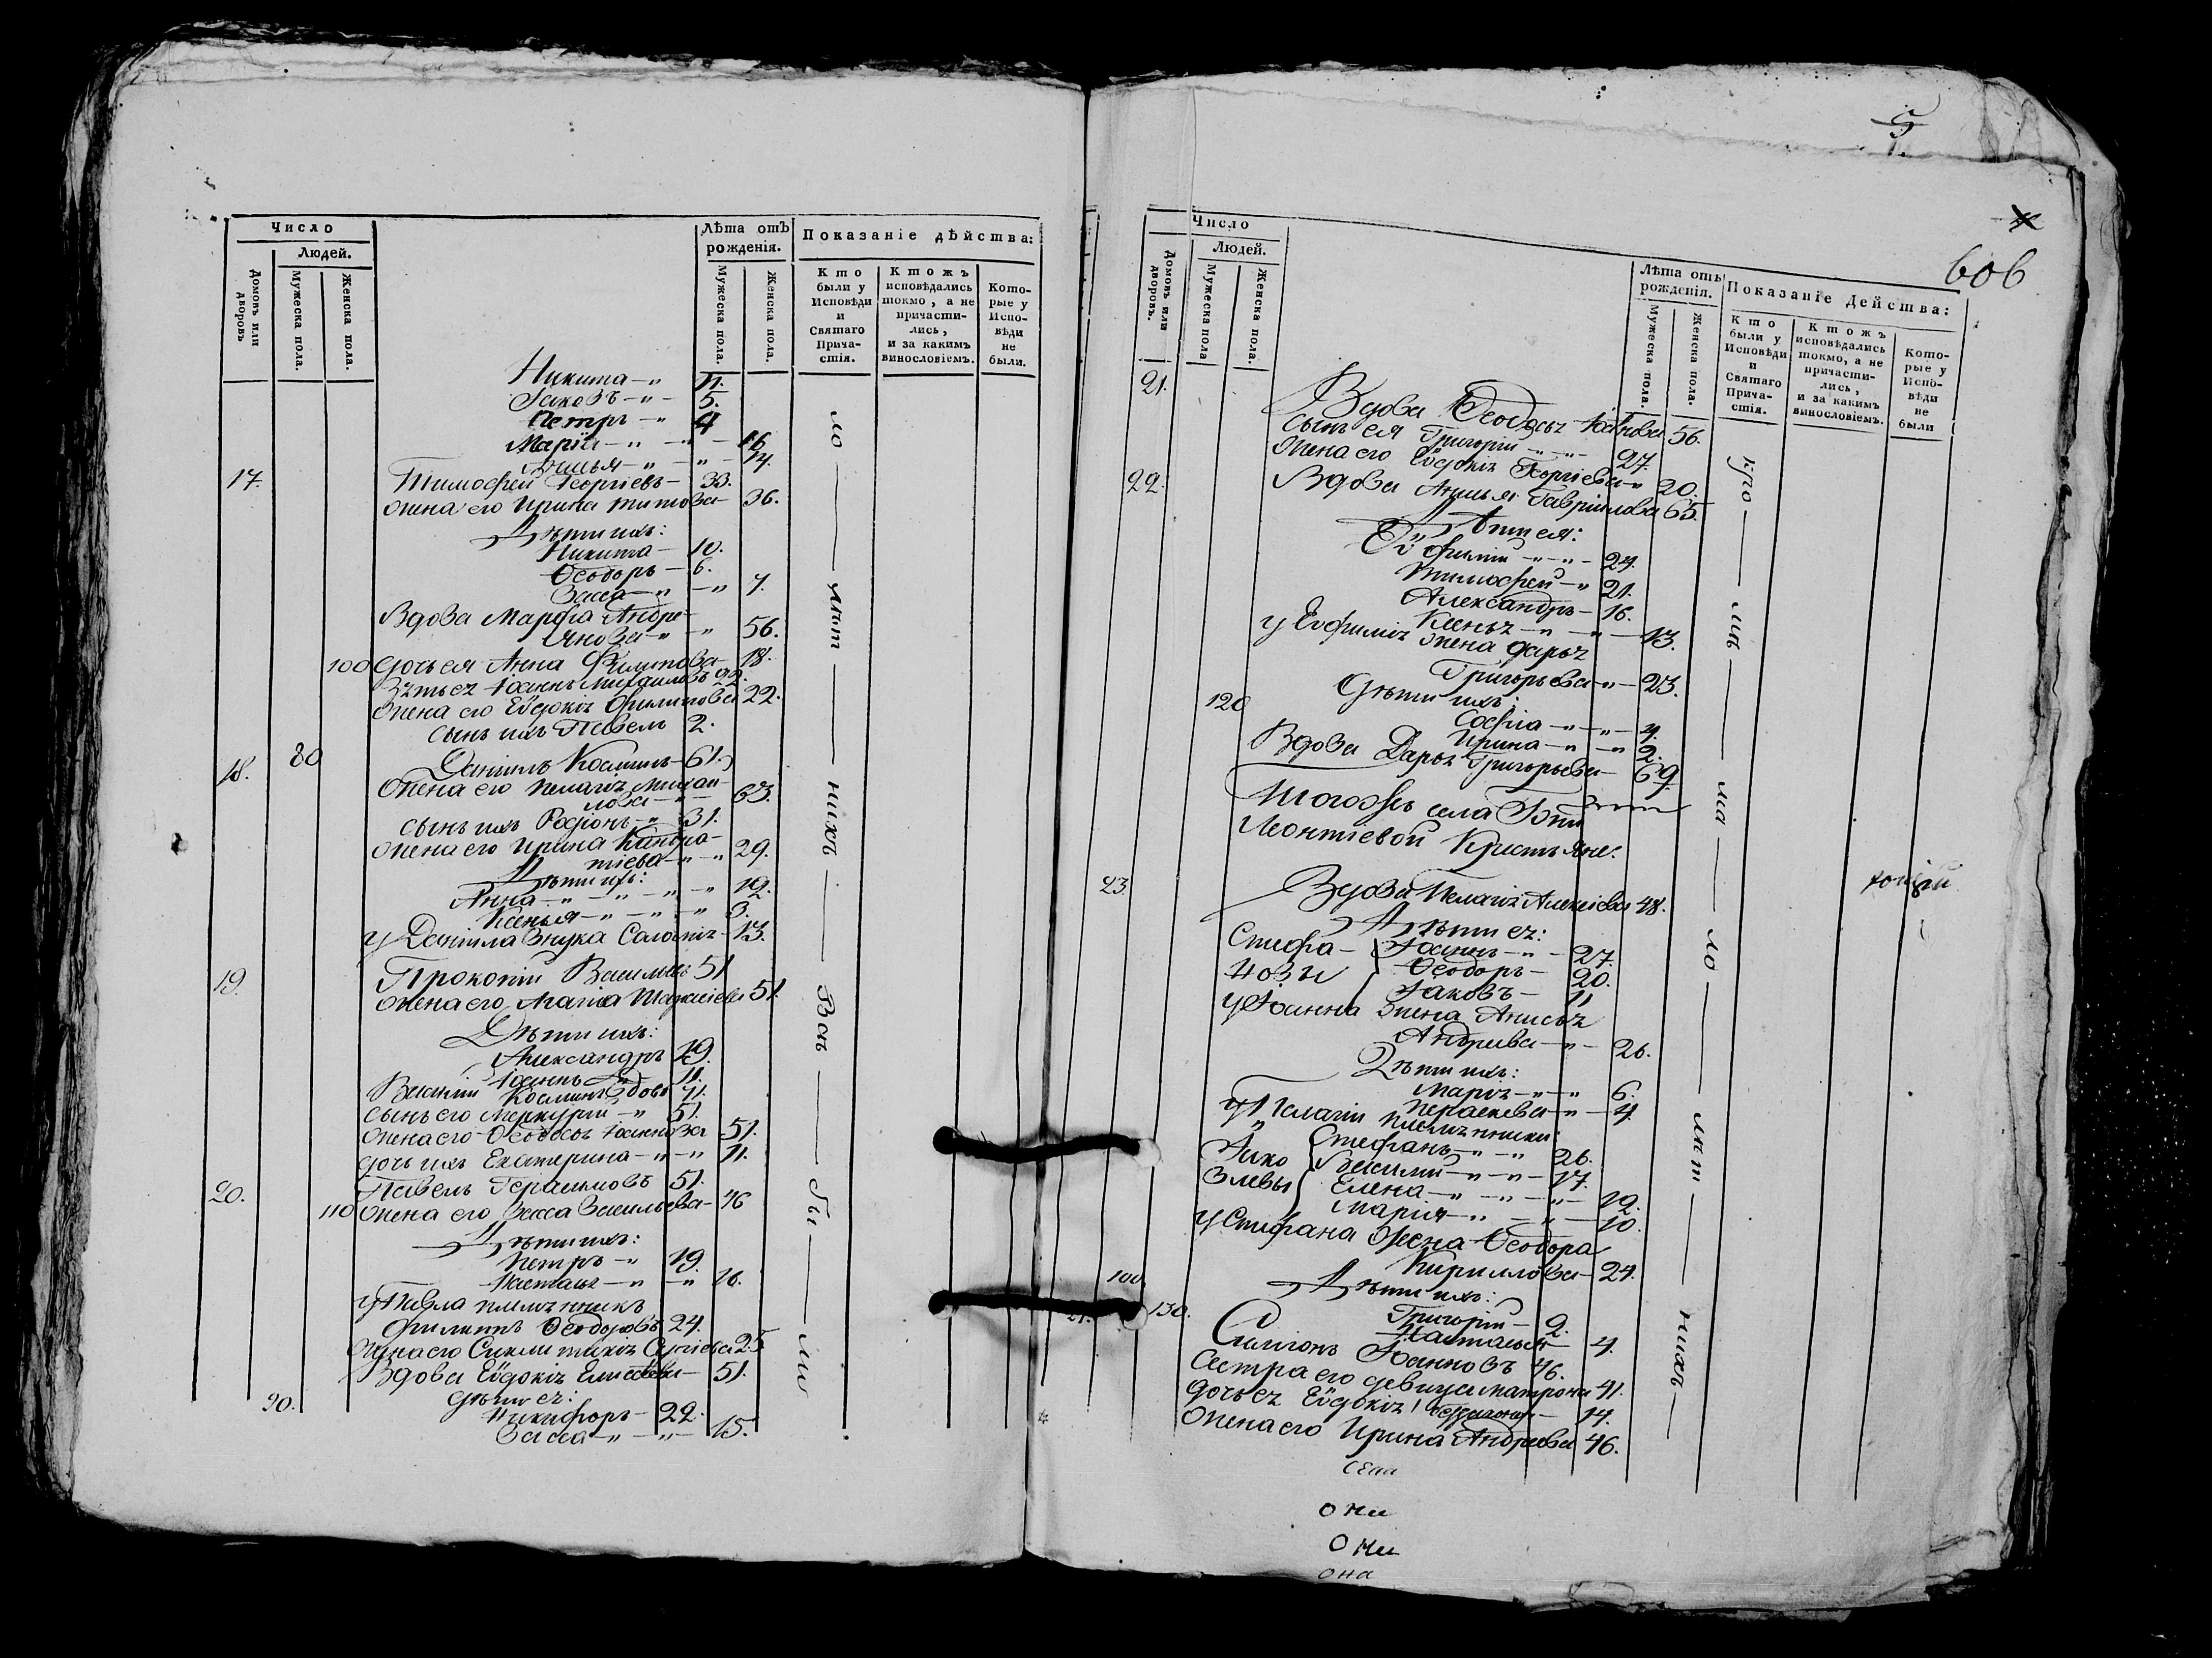 Число
Людей.
Домовъ или дворовъ
Мужеска пола.
Женска пола.
Лѣта отъ рожденія.
Мужеска пола.
Женска пола.
Показаніе дѣйства:
Кто были у Исповѣди и Святаго Прича-стія.
Ктожъ исповѣдались токмо, а не причасти-лись, и за какимъ винословіемъ.
Кото-рые у Испо-вѣди не были.
Никита 11.
Іаковъ 5.
Петръ 4
Марія 16
14.
17. Тимофей Георгіевъ 33.
жена его Ирина Титова 36.
Дѣти ихъ:
Никита 10.
Ѳеодоръ 6.
Васса 7.
Вдова Марфа Андре-
янова 56.
100 дочь ея Анна Филипова 18.
зять ея Іоаннъ Михаиловъ 22.
жена его Евдокія Филипова 22.
сынъ ихъ Павелъ 2.
80
18. Даніилъ Косминъ 61.
жена его Пелагія Михаи-
лова 63.
сынъ ихъ Родіонъ 31.
жена его Ирина Кандра-
тіева 29.
Дѣти ихъ:
Анна
Ксенья 3.
у Даніила внука 13.
19. Прокопій Васильевъ 51
жена его 51.
Дѣти ихъ:
Александръ 19.
Іоаннъ 11.
Василій Косминъ вдовъ 71.
сынъ его Меркурій 51.
жена его Ѳеодосья Іоаннова 51.
дочь ихъ Екатерина 11.
20. Павелъ Герасимовъ 51.
110 жена его Васса Васильева 46
Дѣти ихъ:
Петръ 19.
Настасья 16.
у Павла племянникъ
Филиппъ Ѳеодоровъ 24.
жена его Сергіева 25
Вдова Евдокія Елисеева 51.
90. дѣти ея:
Никифоръ 22.
Васса 15.
ло — лѣт — нихъ — Всѣ — бы — ли
5
606
Число
Людей.
Домовъ или дворовъ.
Мужеска пола
Женска пола.
Лѣта отъ рожденія.
Мужеска пола.
Женска пола.
Показаніе Действа:
Кто были у Исповѣди и Святаго Прича-стія.
Ктожъ исповѣдались токмо, а не причасти-лись, и за какимъ винословіемъ.
Кото-рые у Испо-вѣди не были
21. Вдова Ѳеодосья 56.
сынъ ея Григорій 27.
жена его Евдокія Георгіева 20.
22. Вдова Анисья Гавріилова 65.
Дѣти ея:
Евфимій 24.
Тимофей 21.
Александръ 16.
Ксенья 13.
у Евфимія жена Дарья
Григорьева 23.
дѣти ихъ:
120
Софіа 4.
Ирина 2.
Вдова Дарья Григорьева 69
Тогожъ села
Леонтіевой Крестьяне.
23. Вдова Пелагія Алексіева 48.
Дѣти ея:
Стефа-новы
Іоаннъ 27.
Ѳеодоръ 20.
Іаковъ 11
у Іоанна жена Анисья
Андреева 26.
Дѣти ихъ:
Марія 6.
4.
у Пелагіи племянники:
Яко-влевы
Стефанъ 26.
Василій 17.
Елена 12.
Марія 10.
у Стефана жена Ѳеодора
Кириллова 24.
100
Дѣти ихъ:
130. Григорій 2.
Настасья 4.
Симіонъ Іоанновъ 46.
сестра его девица Матрона 41.
дочь ея Евдокія 14.
жена его Ирина Андреева 46.
кро — мѣ — ма — ло — лѣт — нихъ
они
они
она